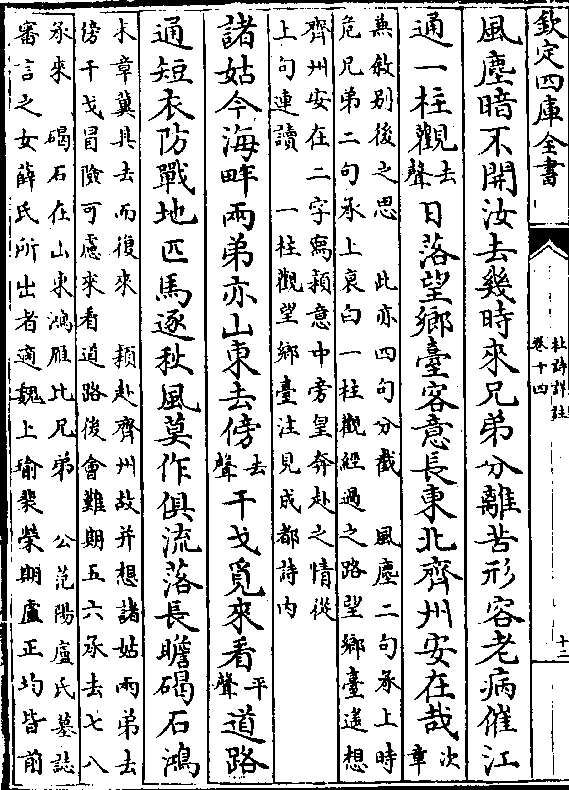 欽定四庫全書
杜詩詳註
卷十四
十二
風塵暗不開汝去幾時來兄弟分離苦形容老病催江
通一柱觀去聲日落望鄉臺客意長東北齊州安在哉次章
兼敘別後之思　此亦四句分截　風塵二句承上時
危兄弟二句承上哀白一柱觀經過之路望鄉臺遙想
齊州安在二字寫穎意中旁皇奔赴之情從
上句連讀　一柱觀望鄉臺注見成都詩內
諸姑今海畔兩弟亦山東去傍去聲干戈覓來看平聲道路
通短衣防戰地匹馬逐秋風莫作俱流落長瞻碣石鴻
末章冀其去而復來　穎赴齊州故并想諸姑兩弟去
傍干戈冒險可慮來看道路後會難期五六承去七八
承來　碣石在山東鴻雁比兄弟　公范陽盧氏墓誌
審言之女薛氏所出者適魏上瑜裴榮期盧正均皆前